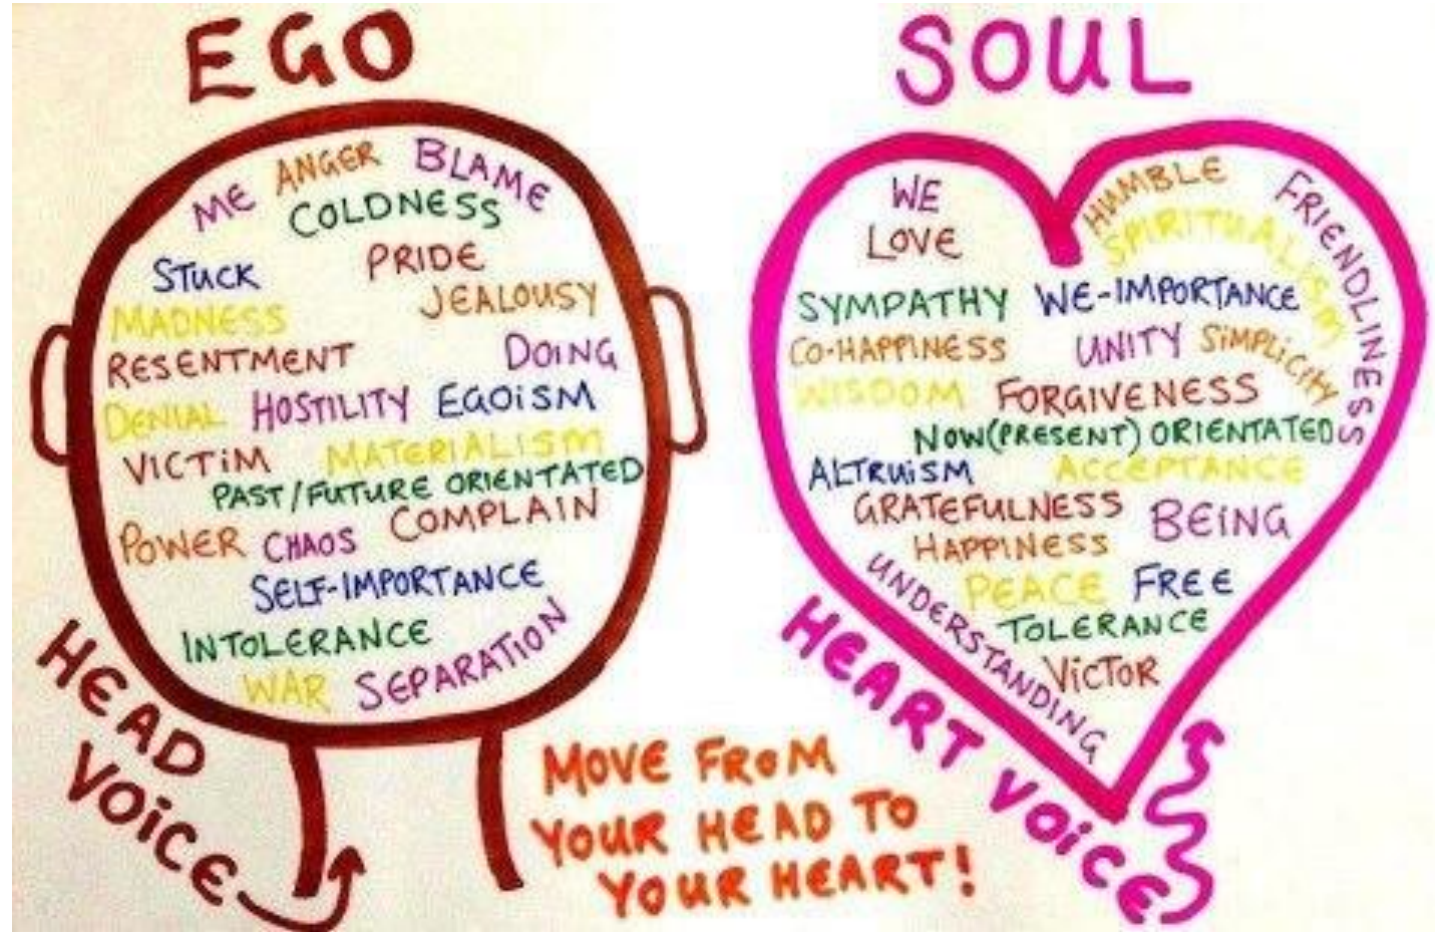 EGO
ME ANGER BLAME
COLDNESS
STUCK PRIDE
MADNESS JEALOUSY
RESENTMENT DOING
DENIAL HOSTILITY EGOiSM
VICTiM MATERIALISM
PAST/FUTURE ORIENTATED
POWER CHAOS COMPLAIN
SELF-IMPORTANCE
INTOLERANCE
WAR SEPARATION
HEAD
VOiCE
SOUL
WE HUMBLE FRIENDLINESS
LOVE SPIRITUALISM
SYMPATHY WE-IMPORTANCE
CO-HAPPINESS UNITY SiMPLiCiTY
WISDOM FORGIVENESS
NOW(PRESENT) ORIENTATED
ALTRUiSM ACCEPTANCE
GRATEFULNESS BEiNG
HAPPINESS
PEACE FREE
UNDERSTANDING TOLERANCE
ViCTOR
HEART VOiCE
MOVE FROM
YOUR HEAD TO
YOUR HEART!